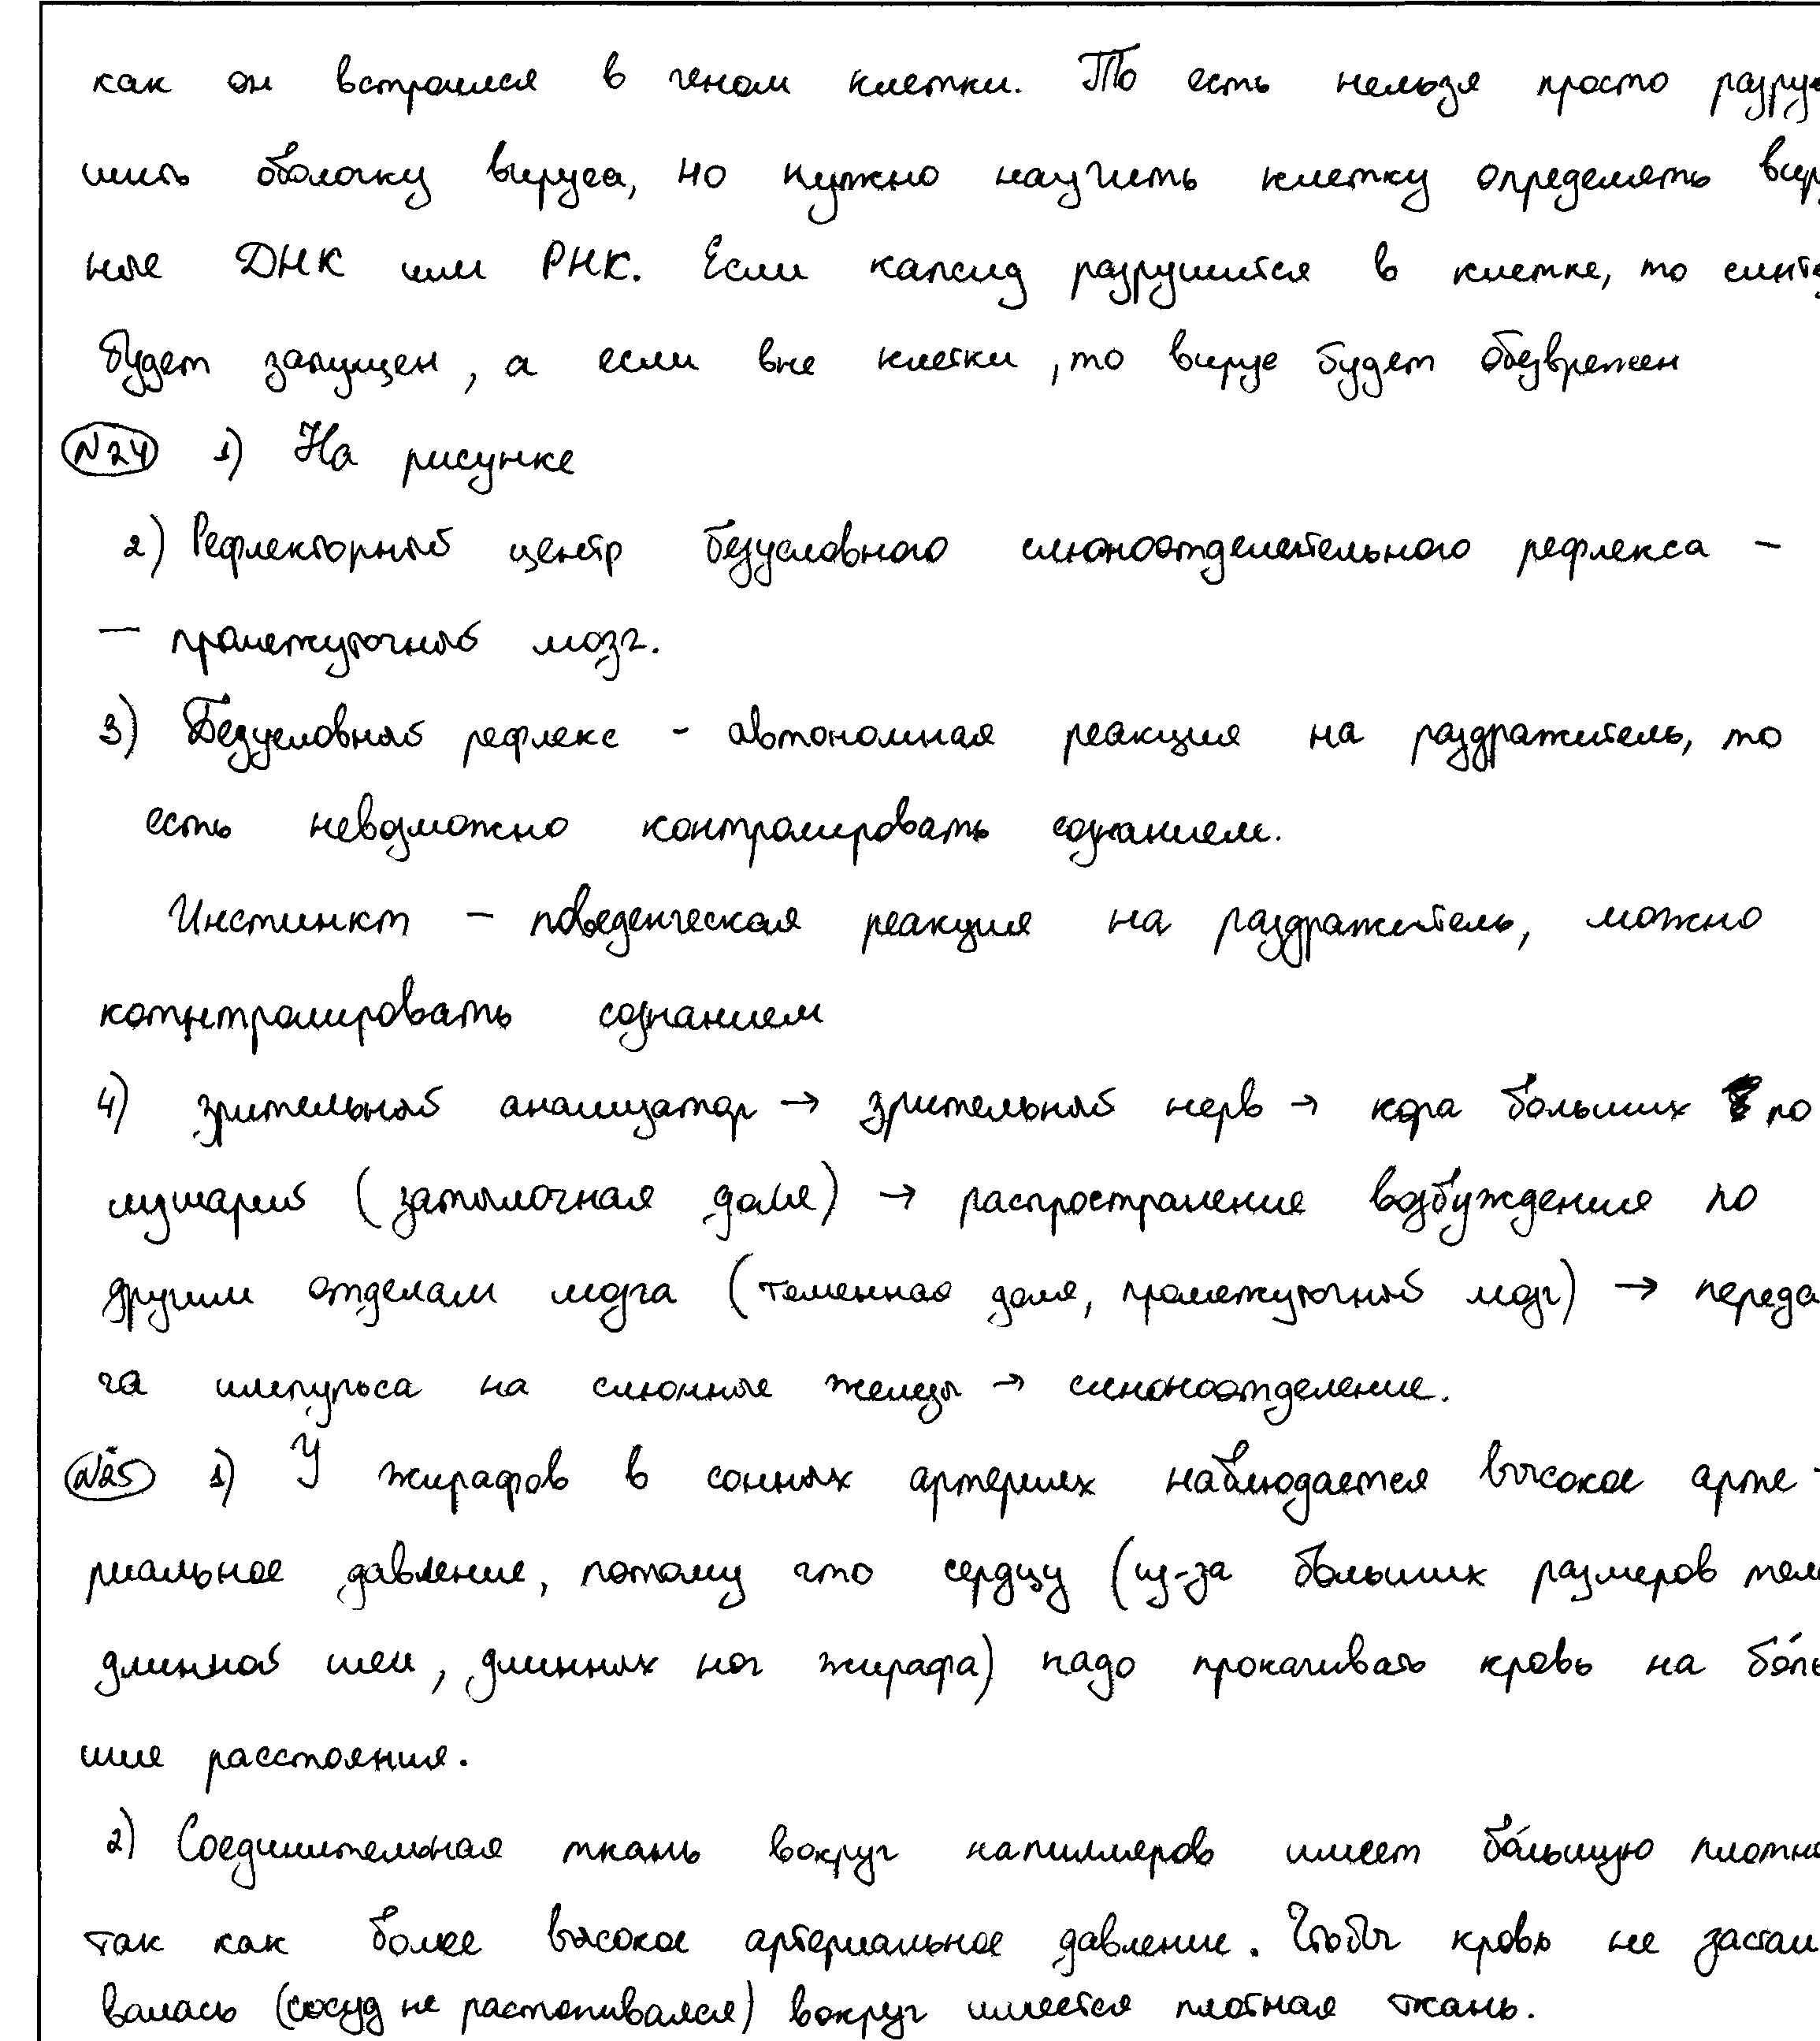 как он встроился в геном клетки. То есть нельзя просто разру
шить оболочку вируса, но нужно научить клетку определять вир
ные ДНК или РНК. Если капсид разрушится в клетке, то синте
будет запущен, а если вне клетки, то вирус будет обезврежен
№24 1) На рисунке
2) Рефлекторный центр безусловного слюноотделительного рефлекса –
– промежуточный мозг.
3) Безусловный рефлекс - автономная реакция на раздражитель, то
есть невозможно контролировать сознанием.
Инстинкт – поведенческая реакция на раздражитель, можно
контролировать сознанием
4) зрительный анализатор → зрительный нерв → кора больших по
лушарий (затылочная доля) → распространение возбуждения по
другим отделам мозга (теменная доля, промежуточный мозг) → переда
ча импульса на слюнные железы → слюноотделение.
№25 1) У жирафов в сонных артериях наблюдается высокое арте-
риальное давление, потому что сердцу (из-за больших размеров тела
длинной шеи, длинных ног жирафа) надо прокачивать кровь на бо́ль
шие расстояния.
2) Соединительная ткань вокруг капилляров имеет бо́льшую плотно
так как более высокое артериальное давление. Чтобы кровь не застаи
валась (сосуд не растягивался) вокруг имеется плотная ткань.